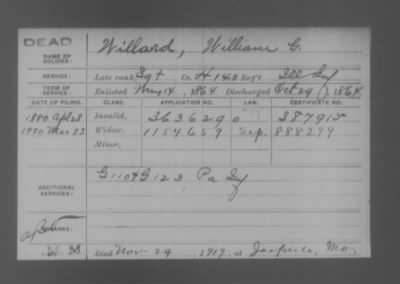 DEAD
NAME OF SOLDIER: Willard, William G.
SERVICE: Late rank, Sgt Co. H 143 Reg't Ill Inf
TERM OF SERVICE: Enlisted May 14, 1864 Discharged Oct 29, 1864
DATE OF FILING. CLASS. APPLICATION NO. LAW. CERTIFICATE NO.
1880 Apl 28 Invalid, 363629 387915
Mar 23 Widow, 1154659 888299
Minor,
ADDITIONAL SERVICES: G 123 Pa Inf
REMARKS:
Died Nov 24, 1919, at Jasper Co, Mo.